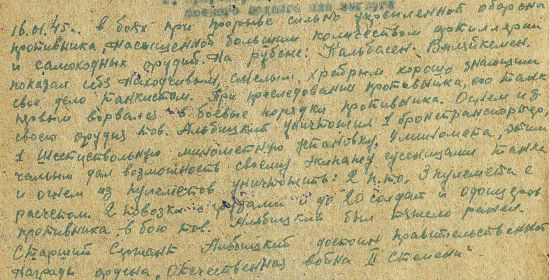 16.01.45г. в боях при прорыве сильно укрепленной обороны
противника насыщенной большим количеством артиллерии
и самоходных орудий. На рубеже: Кальбасен.
показал себя находчивым, смелым, храбрым хорошо знающим
свое дело танкистом. При преследовании противника, его танк
первым ворвался в боевые порядки противника. Огнем из
своего орудия тов. Альбицкий уничтожил 1 бронетранспортер,
1 Шестиствольную минометную установку, 4 миномета, этим
самым дал возможность своему экипажу гусеницами танка
и огнем из пулеметов уничтожить: 2 п.т.о. 3 пулемета с
расчетом 2 повозки с грузами и до 20 солдат и офицеров
противника в бою тов. Альбицкий был тяжело ранен.
Старший Сержант Альбицкий достоин правительственной
Награды ордена „Отечественная война II Степени"